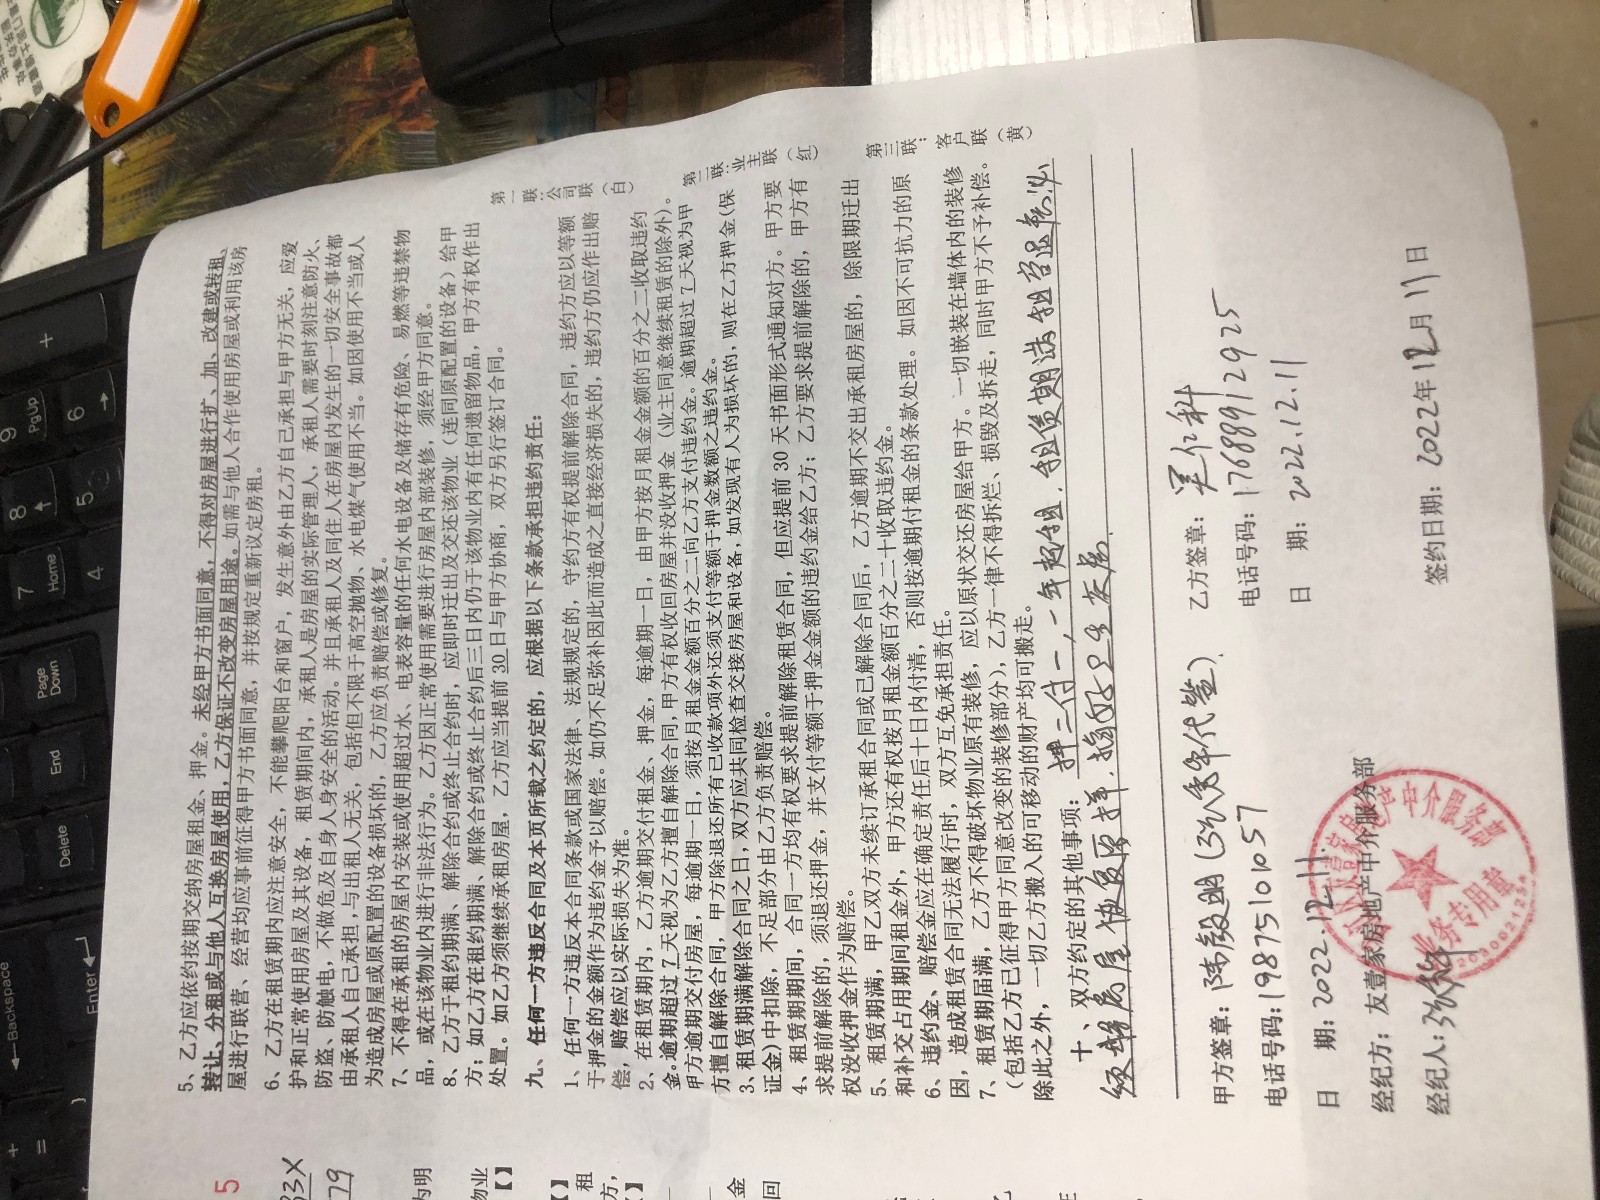 5、乙方应依约按期交纳房屋租金、押金。未经甲方书面同意，不得对房屋进行扩、加、改建或转租、
转让、分租或与他人互换房屋使用，乙方保证不改变房屋用途。如需与他人合作使用房屋或利用该房
屋进行联营、经营均应事前征得甲方书面同意，并按规定重新议定房租。
6、乙方在租赁期内应注意安全，不能攀爬阳台和窗户，发生意外由乙方自己承担与甲方无关，应爱
护和正常使用房屋及其设备，租赁期间内，承租人是房屋的实际管理人，承租人需要时刻注意防火、
防盗、防触电，不做危及自身人身安全的活动。并且承租人及同住人在房屋内发生的一切安全事故都
由承租人自己承担，与出租人无关，包括但不限于高空抛物、水电煤气使用不当。如因使用不当或人
为造成房屋或原配置的设备损坏的，乙方应负责赔偿或修复。
7、不得在承租的房屋内安装或使用超过水、电表容量的任何水电设备及储存有危险、易燃等违禁物
品，或在该物业内进行非法行为。乙方因正常使用需要进行房屋内部装修，须经甲方同意。
8、乙方于租约期满、解除合约或终止合约时，应即时迁出及交还该物业（连同原配置的设备）给甲
方；如乙方在租约期满、解除合约或终止合约后三日内仍于该物业内有任何遗留物品，甲方有权作出
处置。如乙方须继续承租房屋，乙方应当提前30日与甲方协商，双方另行签订合同。
九、任何一方违反合同及本页所载之约定的，应根据以下条款承担违约责任：
1、任何一方违反本合同条款或国家法律、法规规定的，守约方有权提前解除合同，违约方应以等额
于押金的金额作为违约金予以赔偿。如仍不足弥补因此而造成之直接经济损失的，违约方仍应作出赔
偿，赔偿应以实际损失为准。
2、在租赁期内，乙方逾期交付租金、押金，每逾期一日，由甲方按月租金金额的百分之二收取违约
金。逾期超过7天视为乙方擅自解除合同，甲方有权收回房屋并没收押金（业主同意继续租赁的除外）。
甲方逾期交付房屋，每逾期一日，须按月租金金额百分之二向乙方支付违约金。逾期超过7天视为甲
方擅自解除合同，甲方除退还所有已收款项外还须支付等额于押金数额之违约金。
3、租赁期满解除合同之日，双方应共同检查交接房屋和设备，如发现有人为损坏的，则在乙方押金(保
证金)中扣除，不足部分由乙方负责赔偿。
4、租赁期期间，合同一方均有权要求提前解除租赁合同，但应提前30天书面形式通知对方。甲方要
求提前解除的，须退还押金，并支付等额于押金金额的违约金给乙方；乙方要求提前解除的，甲方有
权没收押金作为赔偿。
5、租赁期满，甲乙双方未续订承租合同或已解除合同后，乙方逾期不交出承租房屋的，除限期迁出
和补交占用期间租金外，甲方还有权按月租金额百分之二十收取违约金。
6、违约金、赔偿金应在确定责任后十日内付清，否则按逾期付租金的条款处理。如因不可抗力的原
因，造成租赁合同无法履行时，双方互免承担责任。
7、租赁期届满，乙方不得破坏物业原有装修，应以原状交还房屋给甲方。一切嵌装在墙体内的装修
（包括乙方已征得甲方同意改变的装修部分），乙方一律不得拆烂、损毁及拆走，同时甲方不予补偿。
除此之外，一切乙方搬入的可移动的财产均可搬走。
十、双方约定的其他事项：押二付一，一年起租，租赁期满
房屋恢复原样，搞好卫生
第一联：公司联（白）
第二联：业主联（红）
第三联：客户联（黄）
甲方签章：陈毅明（张秀年代签）
电话号码：19875101057
日 期：2022.12.11.
经纪方：友壹家房地产中介服务部
经纪人：
乙方签章：吴仁科
电话号码：17688912925
日 期：2022.12.11
签约日期：2022年12月11日
房地产中介服务部
业务专用章
5
33X
79
为明
物业
【】
租
方，
金
回
+
=
←Backspace
Enter
Delete
End
Page Down
7 Home
8
9 PgUp
4
5
6
+